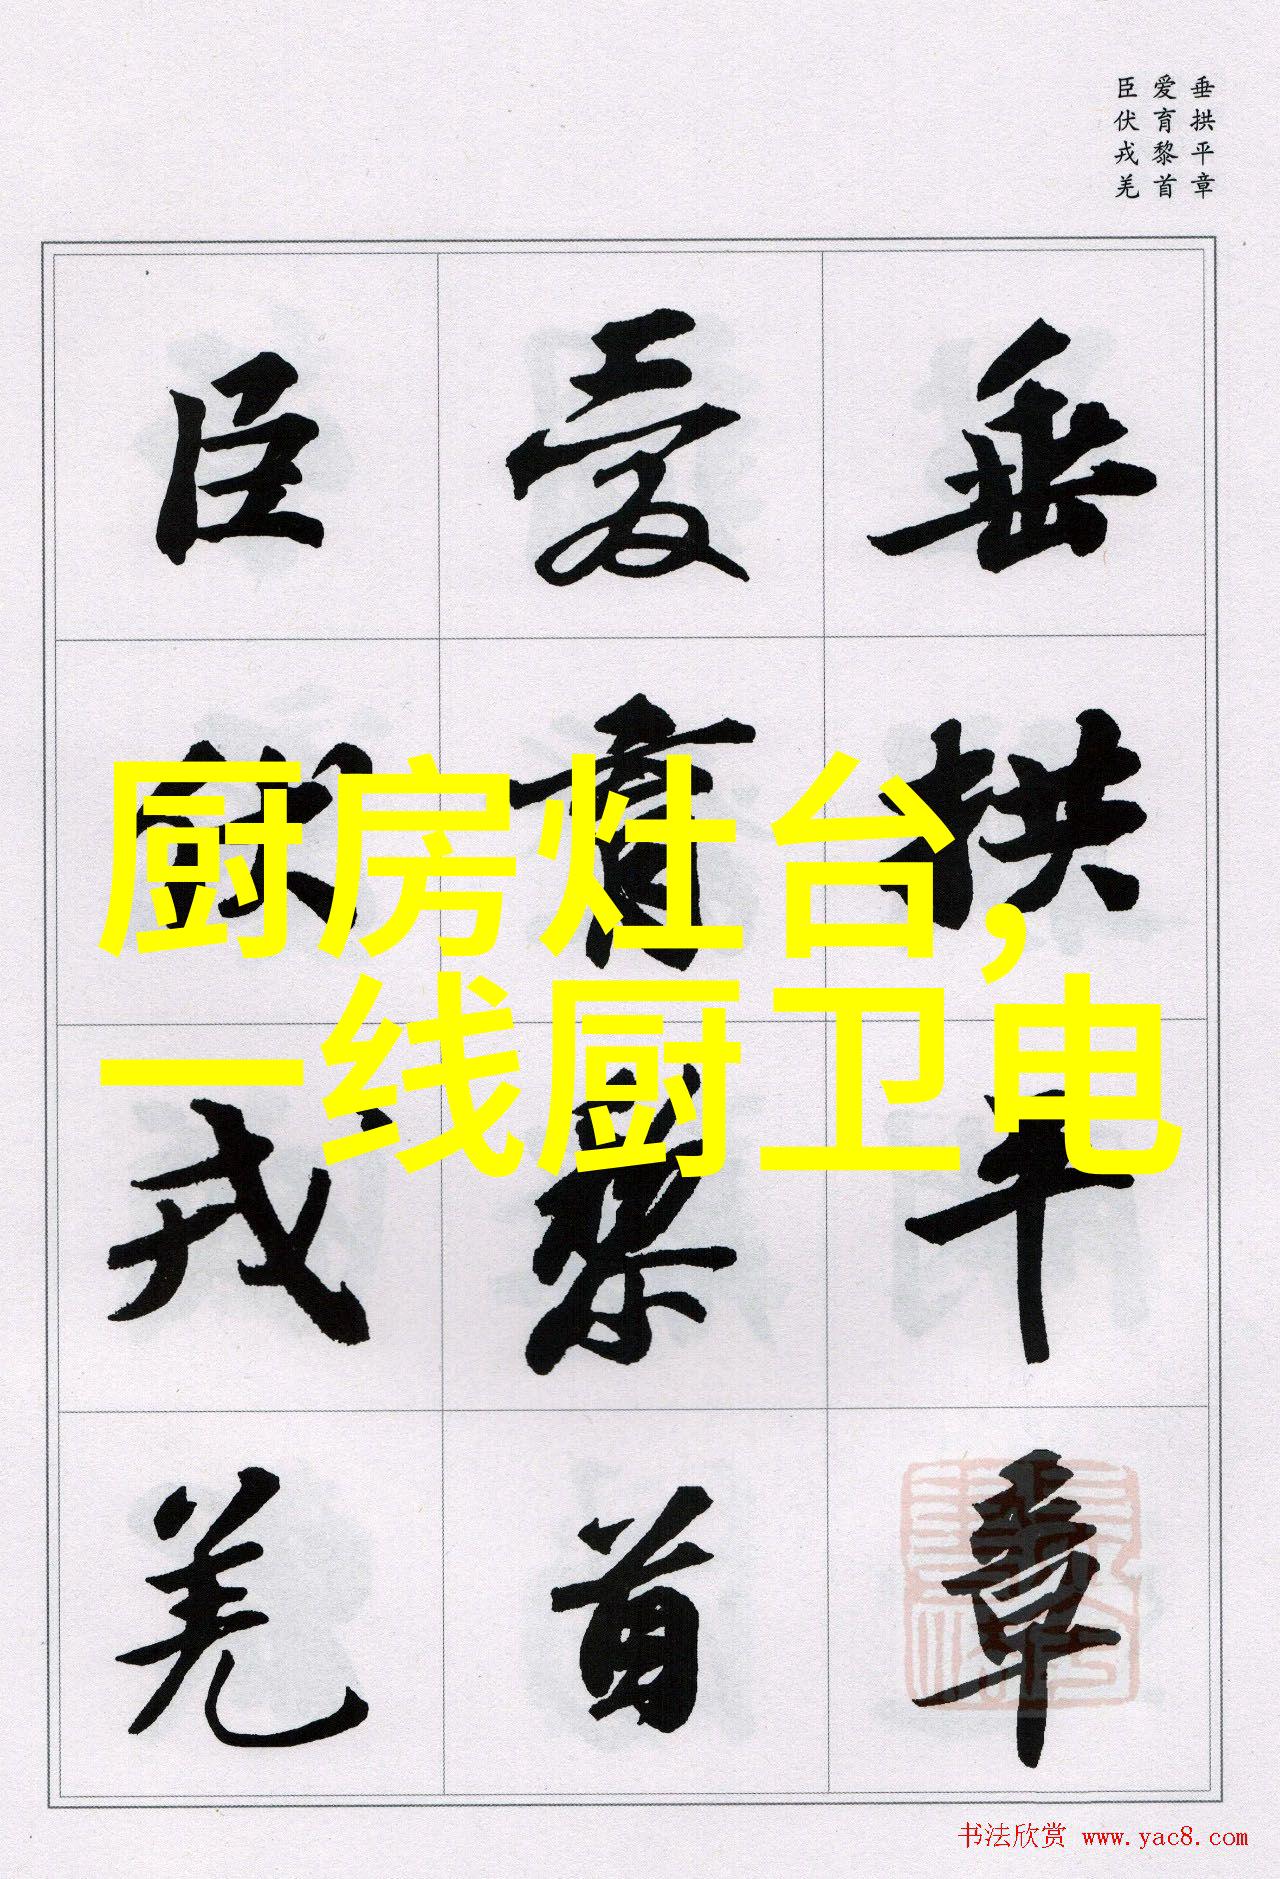 垂拱平章
爱育黎首
臣伏戎羌
垂拱平章
爱育黎首
臣伏戎羌
厨房灶台,
一线厨卫电
书法欣赏 www.yac8.com